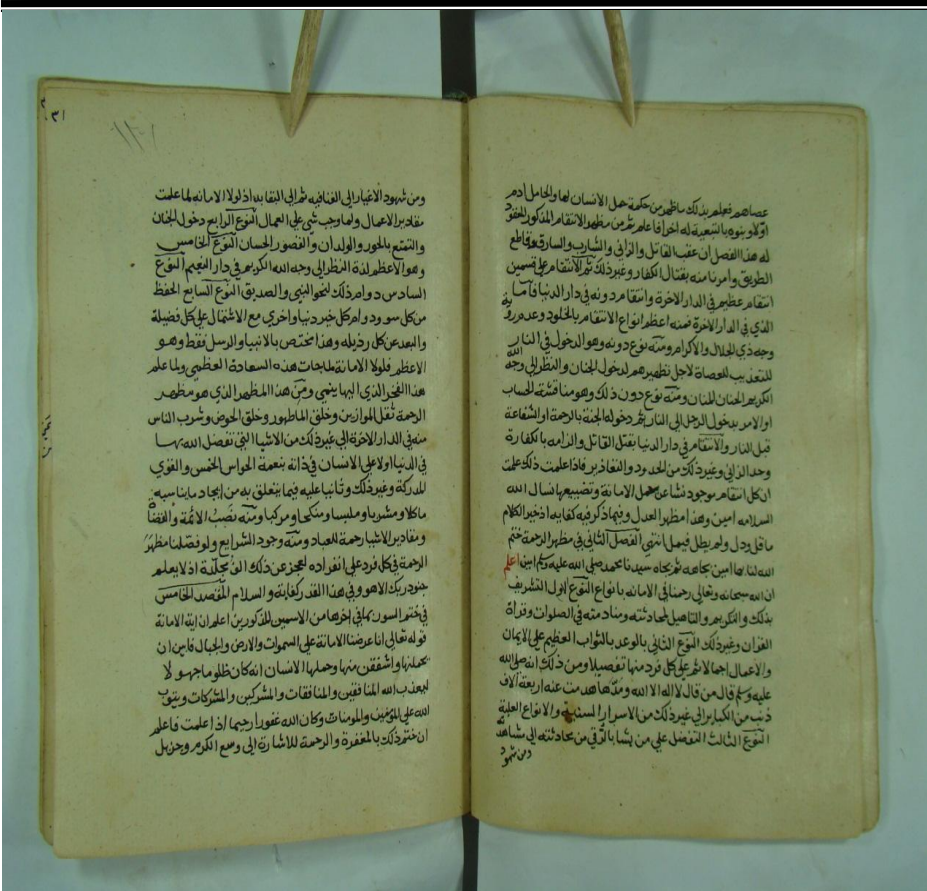 عصاهم فعلم بذلك ما ظهر من حكمة حمل الانسان لها والحامل ادم
اولا وبنوه بالتبعية له اخرا فاعلم ثم من مظهر الانتقام المذكور المعقود
له هذا الفصل ان عقب القاتل والزاني والشارب والسارق وقاطع
الطريق وامرنا منه بقتال الكفار وغير ذلك ثم الانتقام على قسمين
انتقام عظيم في الدار الاخرة وانتقام دونه في دار الدنيا فاما
الذي في الدار الاخرة فمنه اعظم انواع الانتقام بالخلود وعدم رؤية
وجه ذي الجلال والاكرام ومنه نوع دونه وهو الدخول في النار
للتعذيب للعصاة لاجل تطهيرهم لدخول الجنان والنظر الى وجه الله
الكريم الحنان المنان ومنه نوع دون ذلك وهو مناقشة الحساب
او الامر بدخول الرجل الى النار ثم دخوله الجنة بالرحمة او الشفاعة
قبل النار والانتقام في دار الدنيا بقتل القاتل والزامه بالكفارة
وحد الزاني وغير ذلك من الحدود والتعاذير فاذا علمت ذلك علمت
ان كل انتقام موجود نشا عن حمل الامانة وتضييعها نسال الله
السلامه امين وهذا مظهر العدل وفيما ذكر فيه كفايه اذ خير الكلام
ما قل ودل ولم يطل فيمل انتهى الفصل الثاني في مظهر الرحمة ختم
الله لنا بها امين بجاهه ثم بجاه سيدنا محمد صلى الله عليه وسلم امين اعلم
ان الله سبحانه وتعالى رحمنا في الامانه بانواع النوع الاول التشريف
بذلك والتكريم والتاهيل لمحادثته ومنادمته في الصلوات وقراة
القران وغير ذلك النوع الثاني بالوعد بالثواب العظيم على الايمان
والاعمال اجمالا ثم على كل فرد منها تفصيلا ومن ذلك انه صلى الله
عليه وسلم قال من قال لا اله الا الله ومدها هدمت عنه اربعة الاف
ذنب من الكباير الى غير ذلك من الاسرار السنية والانواع العلية
النوع الثالث التفضل على من يشا بالترقي من محادثته الى مشاهدته
ومن شهود
٣١
ومن شهود الاغيار الى الفنا فيه ثم الى البقا به اذ لولا الامانه لما علمت
مقادير الاعمال ولما وجب شي على العمال النوع الرابع دخول الجنان
والتمتع بالحور والولدان والقصور الحسان النوع الخامس
وهو الاعظم لذة النظر الى وجه الله الكريم في دار النعيم النوع
السادس دوام ذلك لنحو النبي والصديق النوع السابع الحفظ
من كل سو ودوام كل خير دنيا واخرى مع الاشتمال على كل فضيلة
والبعد عن كل رذيله وهذا مختص بالانبيا والرسل فقط وهو
الاعظم فلولا الامانة لما جات هذه السعادة العظمى ولما علم
هذا الفخر الذي اليها ينمى ومن هذا المظهر الذي هو مظهر
الرحمة ثقل الموازين وخلق الماطهور وخلق الحوض وشرب الناس
منه في الدار الاخرة الى غير ذلك من الاشيا التي تفضل الله بها
في الدنيا اولا على الانسان في ذاته بنعمة الحواس الخمس والقوى
المدركة وغير ذلك وثانيا عليه فيما يتعلق به من ايجاد ما يناسبه
ماكلا ومشربا وملبسا ومنكحا ومركبا ومنه نصب الائمة والقضاة
ومقادير الاشيا رحمة للعباد ومنه وجود الشرايع ولو فصلنا مظهر
الرحمة في كل فرد على انفراده لعجز عن ذلك الف مجلدة اذ لا يعلم
جنود ربك الا هو وفي هذا القدر كفاية والسلام المقصد الخامس
في ختم السورة بما في اخرها من الاسمين المذكورين اعلم ان اية الامانة
قوله تعالى انا عرضنا الامانة على السموات والارض والجبال فابين ان
يحملنها واشفقن منها وحملها الانسان انه كان ظلوما جهولا
ليعذب الله المنافقين والمنافقات والمشركين والمشركات ويتوب
الله على المؤمنين والمومنات وكان الله غفورا رحيما اذا علمت فاعلم
ان ختم ذلك بالمغفرة والرحمة للاشارة الى وسع الكرم وجزيل